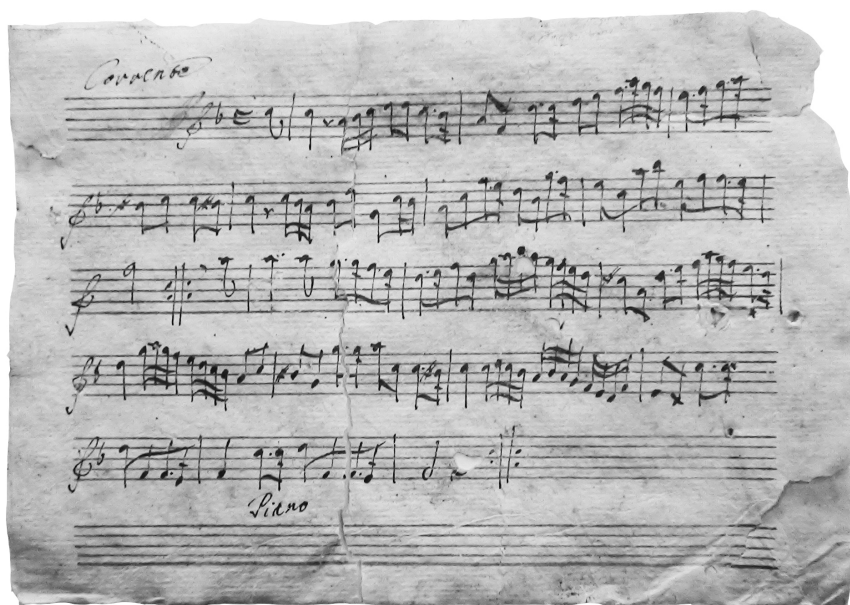 Corrente
Piano